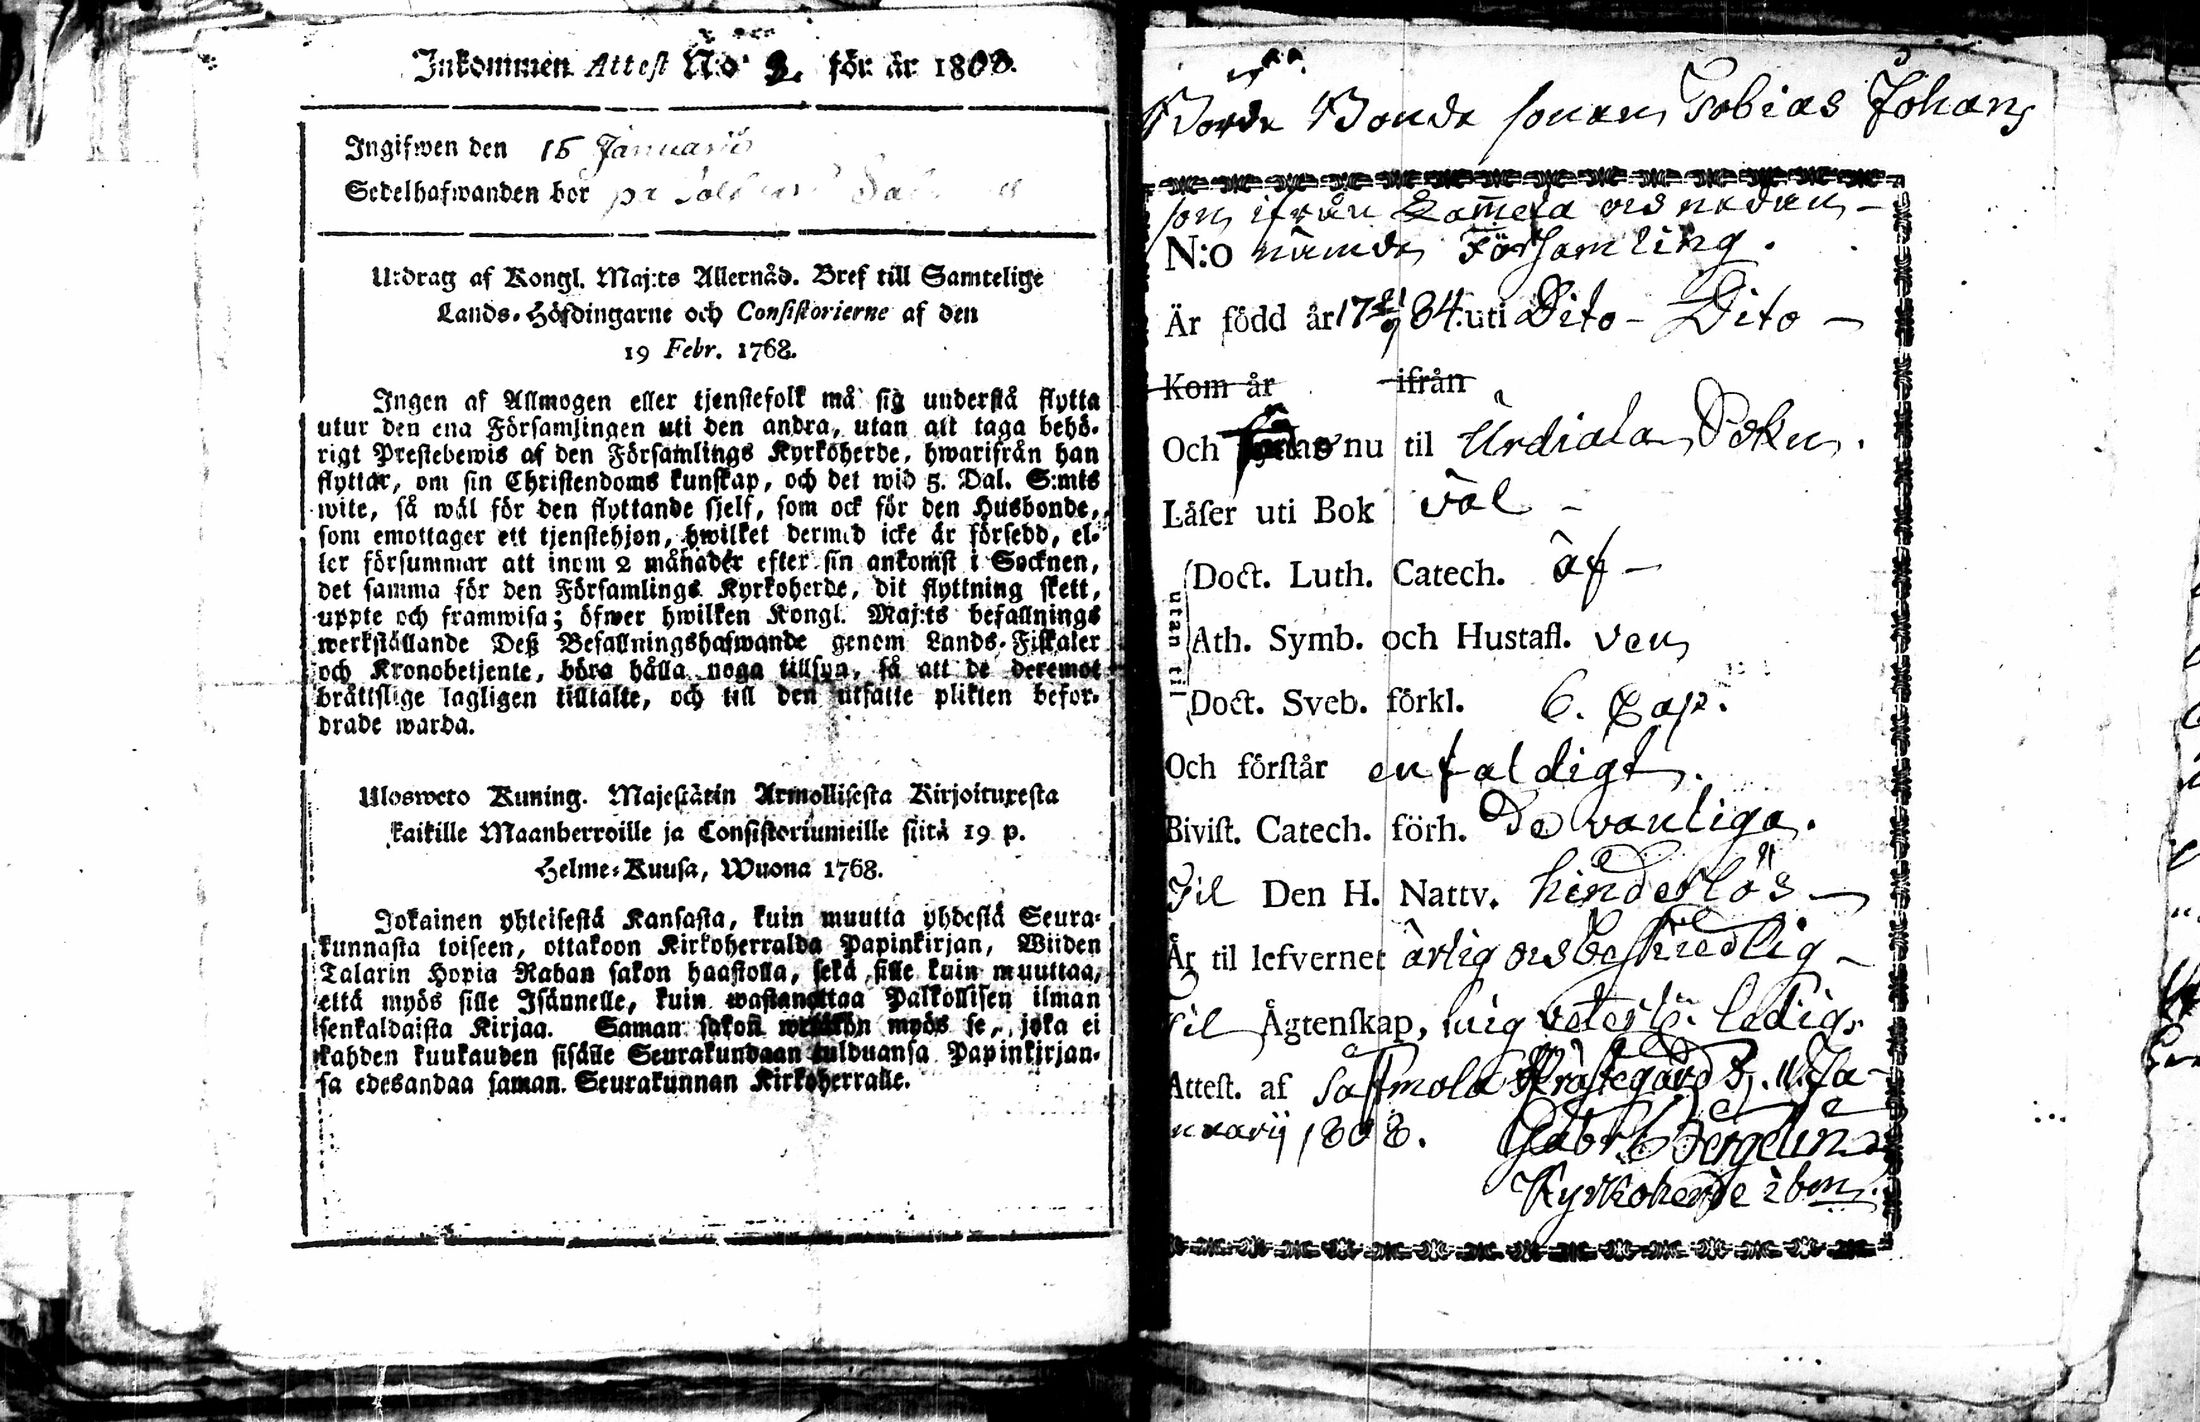 Inkommen Attest N:o 2. för år 1808.
Ingifwen den 15 Januarii
Sedelhafwanden bor på
Utdrag af Kongl. Maj:ts Allernåd. Bref till Samtelige
Lands-Höfdingarne och Consistorierne af den
19 Febr. 1768.
Ingen af Allmogen eller tjenstefolk må sig understå flytta
utur den ena Församlingen uti den andra, utan att taga behö-
rigt Prestebewis af den Församlings Kyrkoherde, hwarifrån han
flyttar, om sin Christendoms kunskap, och det wid 5. Dal. S:mts
wite, så wäl för den flyttande sjelf, som ock för den Husbonde,
som emottager ett tjenstehjon, hwilket dermed icke är försedd, el-
ler försummar att inom 2 månader efter sin ankomst i Socknen,
det samma för den Församlings Kyrkoherde, dit flyttning skett,
uppte och framwisa; öfwer hwilken Kongl. Maj:ts befallnings
werkställande Deß Befallningshafwande genom Lands-Fiskaler
och Kronobetjente, böra hålla noga tillsyn, så att de deremot
bråttslige lagligen tilltalte, och till den utsatte plikten befor-
drade warda.
Ulosweto Kuning. Majestätin Armollisesta Kirjoituxesta
kaikille Maanherroille ja Consistoriumeille siitä 19 p.
Helme-Kuusa, Wuona 1768.
Jokainen yhteisestä Kansasta, kuin muutta yhdestä Seura-
kunnasta toiseen, ottakoon Kirkoherralda Papinkirjan, Wiiden
Talarin Hopia Rahan sakon haastolla, sekä sille kuin muuttaa,
että myös sille Isännelle, kuin wastanottaa Palkollisen ilman
senkaldaista Kirjaa. Saman sakon wetäkön myös se, joka ei
kahden kuukauden sisälle Seurakundaan tulduansa Papinkirjan-
sa edesandaa saman Seurakunnan Kirkoherralle.
Bonde sonen Tobias Johans
son ifrån Lammela och nedan-
N:o nämde Församling.
Är född år 17 21/9 84. uti Dito - Dito -
Kom år ifrån
Och nu til Urdiala Sokn.
Läser uti Bok väl -
utan til
Doct. Luth. Catech. äf -
Ath. Symb. och Hustafl. ven
Doct. Sveb. förkl. 6. Cap.
Och förstår enfaldigt.
Bivist. Catech. förh. De vanliga.
Til Den H. Nattv. hinderlös -
Är til lefvernet ärlig och beskedlig -
Til Ägtenskap, mig veterl: ledig.
Attest. af Sastmola Prästegård d. 11. Ja-
nuarij 1808. Gabr. Bergelin
Kyrkoherde ibm.